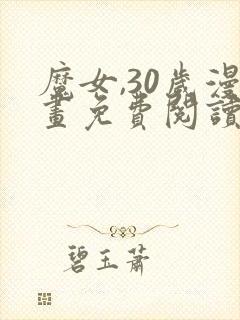 魔女,30歲漫
畫免費閱讀
碧玉蕭